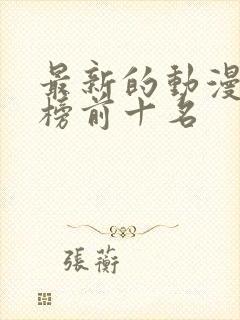 最新的動漫
榜前十名
張蘅